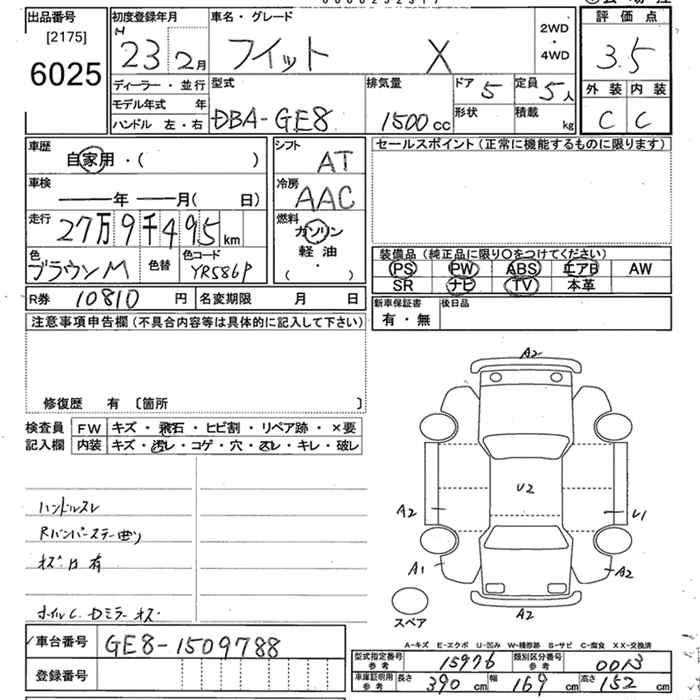 出品番号
[2175]
6025
初度登録年月
H 23年 2月
車名・グレード
フィット X
2WD
・
4WD
評価点
3.5
外装 内装
C C
ディーラー・並行
モデル年式 年
ハンドル 左・右
型式
DBA-GE8
排気量
1500cc
ドア 5
形状
定員 5人
積載 kg
車歴
自家用・( )
車検
年 月( 日)
走行
27万9千495km
色
ブラウンM
色替
色コード
YR586P
シフト
AT
冷房
AAC
燃料
ガソリン
軽油
( ・ )
セールスポイント(正常に機能するものに限ります)
装備品(純正品に限り○をつけてください)
PS PW ABS エアB AW
SR ナビ TV 本革
R券 10810円 名変期限 月 日
新車保証書
有・無
後日品
注意事項申告欄(不具合内容等は具体的に記入して下さい)
修復歴 有 〔箇所 〕
検査員
記入欄
FW キズ・飛石・ヒビ割・リペア跡・×要
内装 キズ・汚レ・コゲ・穴・スレ・キレ・破レ
ハンドルスレ
Rバンパーステー曲り
キズ・凹 有
ホイルC.Dミラーキズ
A2
U2
A2
U1
A1
A2
A2
スペア
A-キズ E-エクボ U-凹み W-補修跡 S-サビ C-腐食 XX-交換済
車台番号
GE8-1509788
登録番号
型式指定番号
参考
15976
類別区分番号
参考
0013
車庫証明用
参考
長さ 390cm 幅 169cm 高さ 152cm